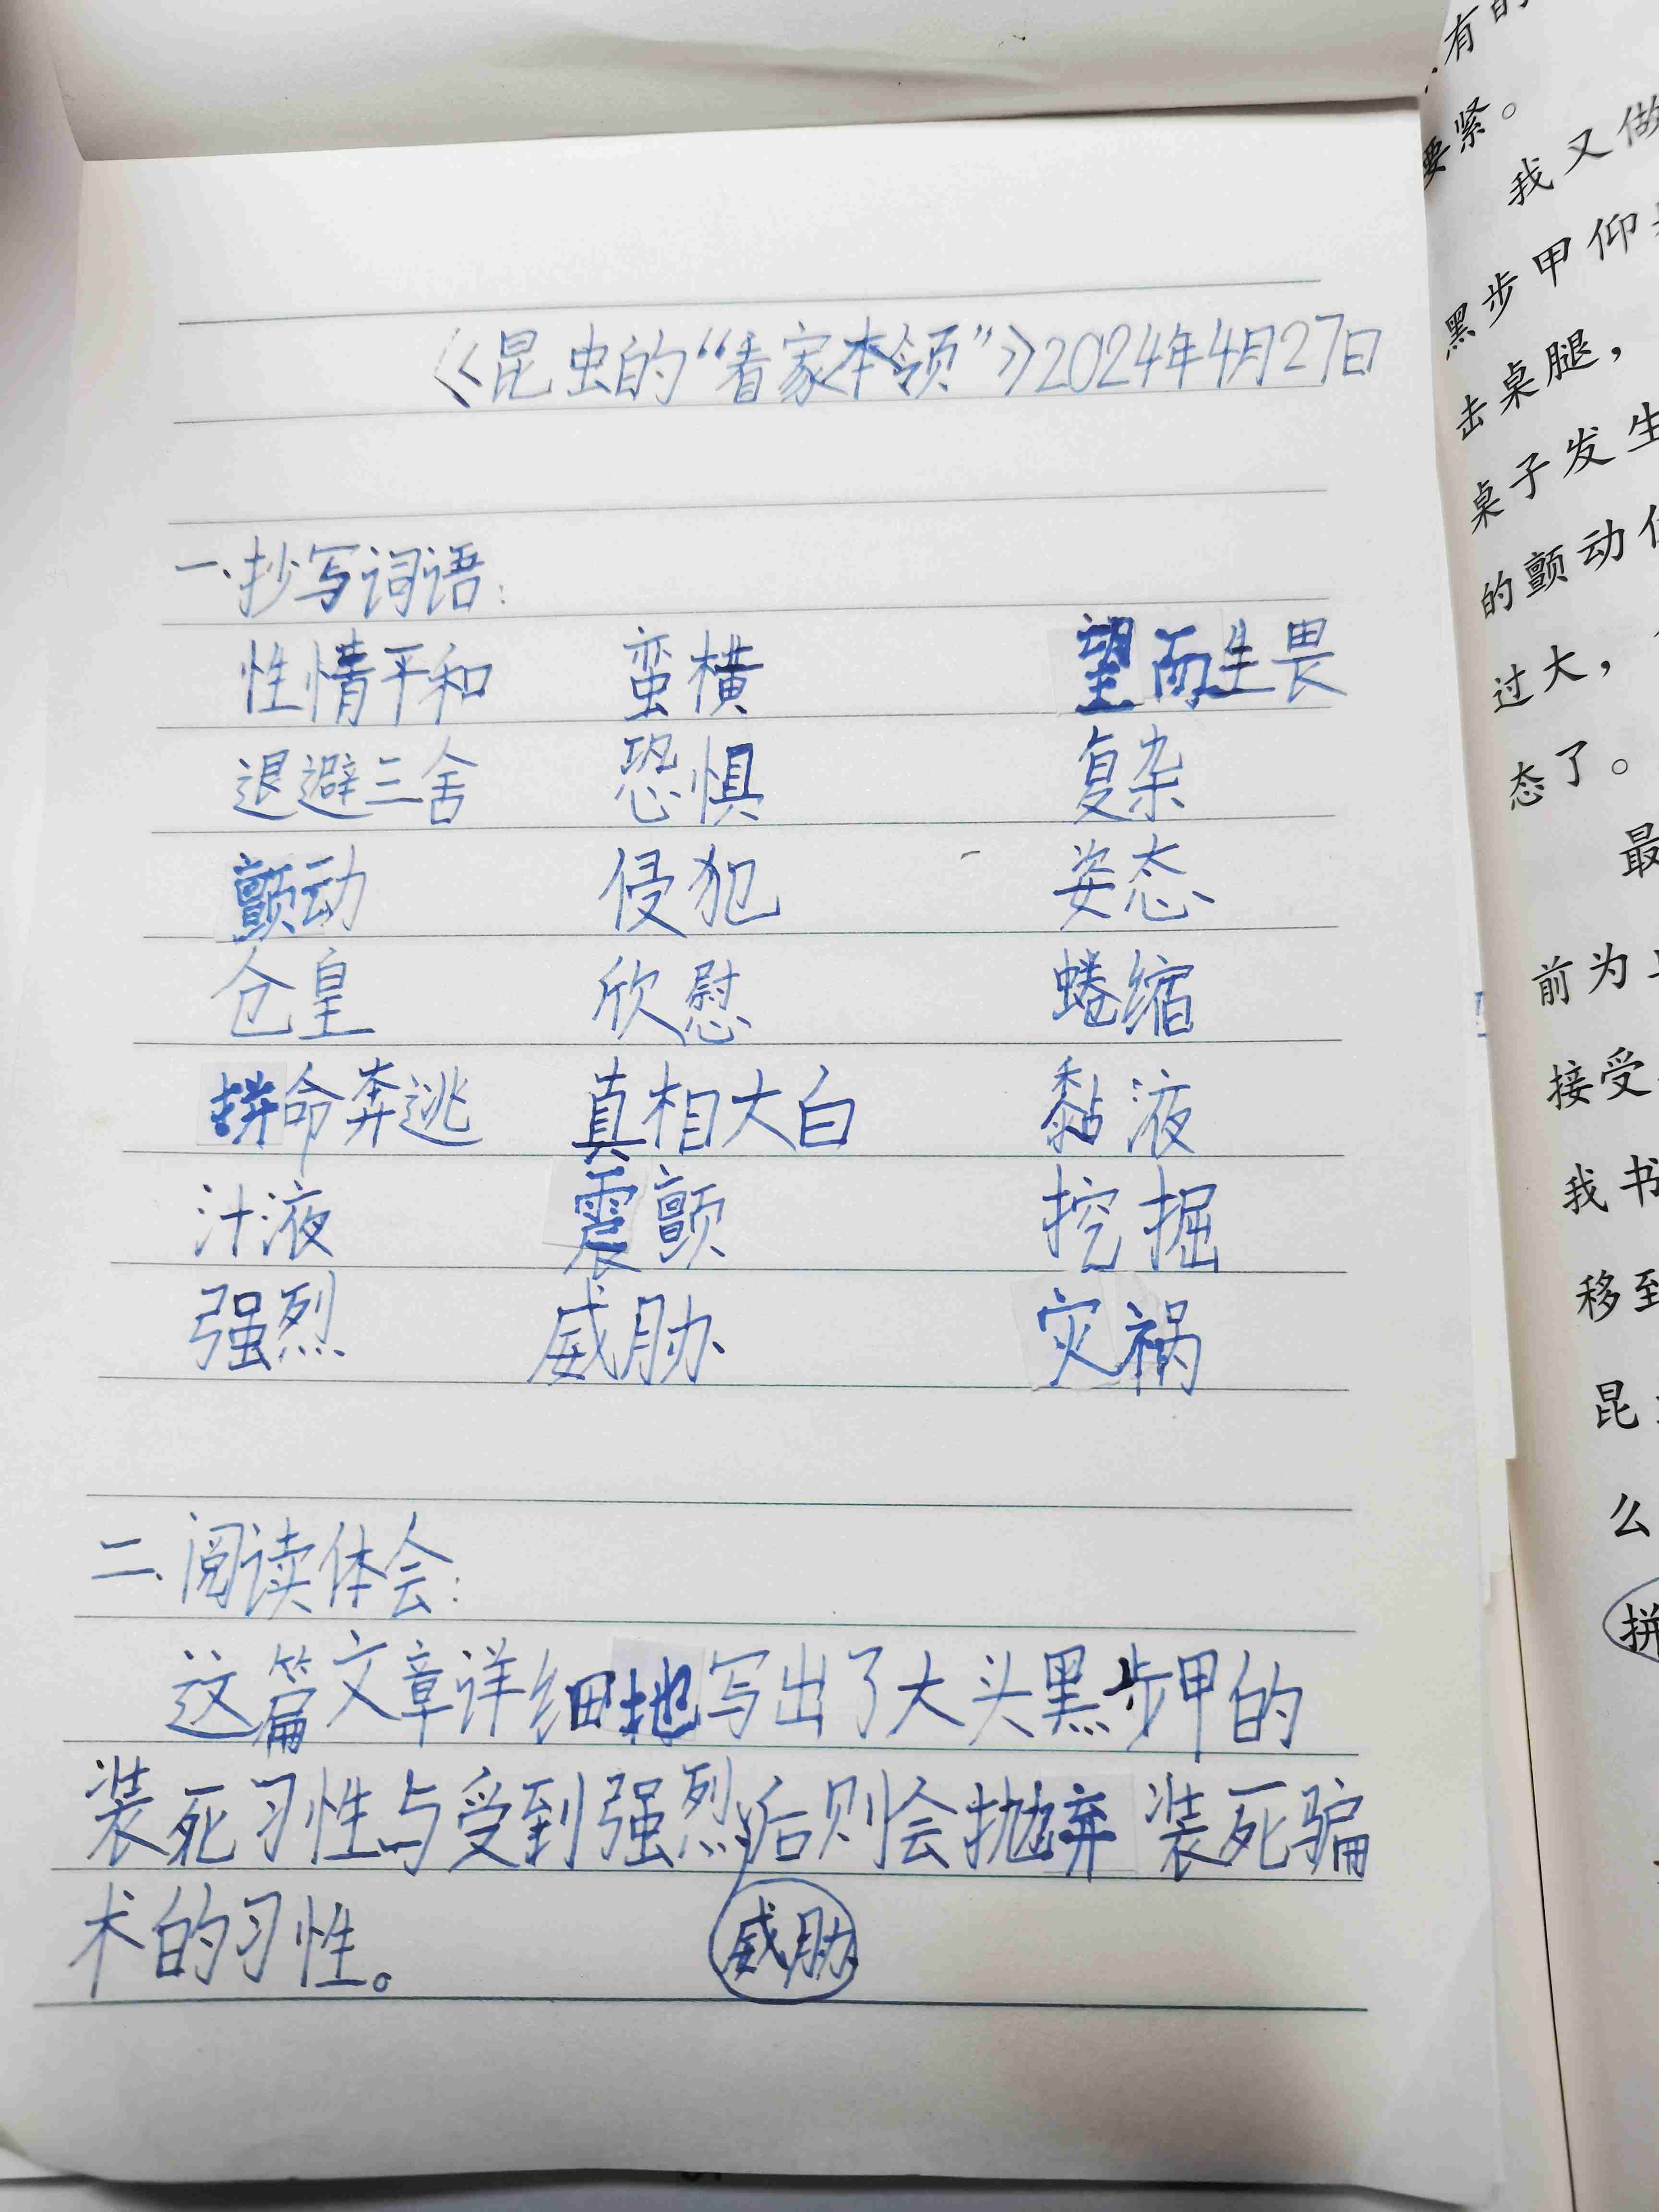 《昆虫的“看家本领”》2024年4月27日
一、抄写词语:
性情平和 蛮横 望而生畏
退避三舍 恐惧 复杂
颤动 侵犯 姿态
仓皇 欣慰 蜷缩
拼命奔逃 真相大白 黏液
汁液 震颤 挖掘
强烈 威胁 灾祸
二、阅读体会:
这篇文章详细地写出了大头黑步甲的
装死习性与受到强烈后则会抛弃装死骗
术的习性。
威胁
有的
要紧。
我又做
黑步甲仰
击桌腿，
桌子发生
的颤动
过大，
态了。
最
前为
接受
我书
移到
昆
么
拼